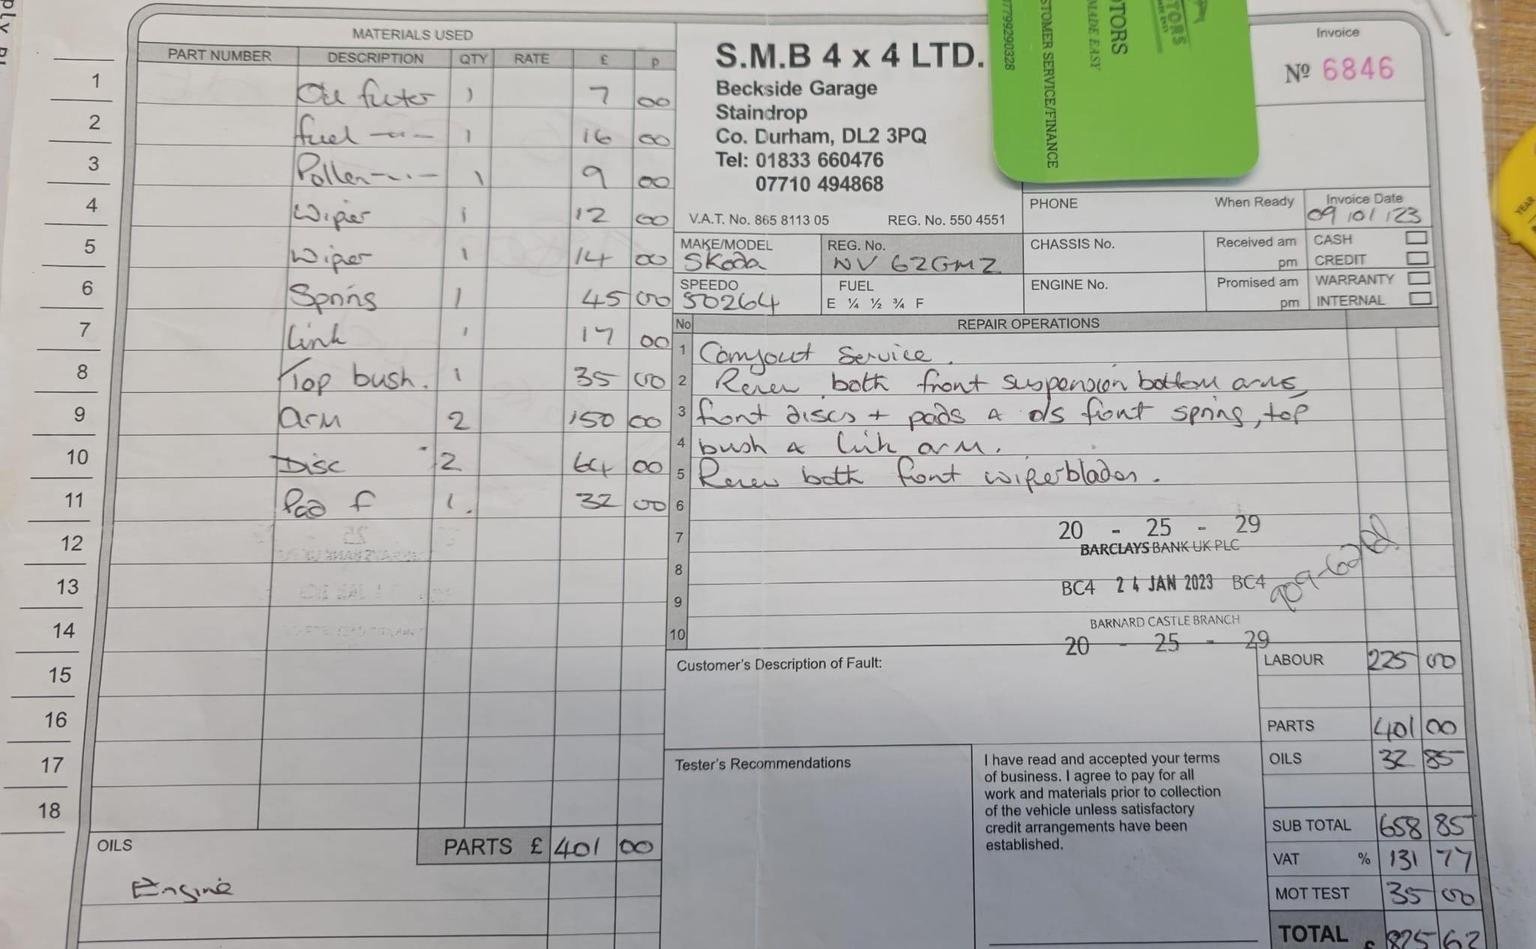 MATERIALS USED
PART NUMBER DESCRIPTION QTY RATE £ p
1 Oil filter 1 7 00
2 fuel -"- 1 16 00
3 Pollen -"- 1 9 00
4 Wiper 1 12 00
5 Wiper 1 14 00
6 Spring 1 45 00
7 Link 1 17 00
8 Top bush. 1 35 00
9 Arm 2 150 00
10 Disc 2 64 00
11 Pad f 1. 32 00
12
13
14
15
16
17
18
PARTS £ 401 00
OILS
Engine
S.M.B 4 x 4 LTD.
Beckside Garage
Staindrop
Co. Durham, DL2 3PQ
Tel: 01833 660476
07710 494868
V.A.T. No. 865 8113 05 REG. No. 550 4551
TOMER SERVICE/FINANCE
7799290328
OTORS
MADE EASY
Invoice
Nº 6846
PHONE When Ready Invoice Date
09/01/23
MAKE/MODEL Skoda
REG. No. NV 62GMZ
CHASSIS No. Received am pm
CASH
CREDIT
SPEEDO 50264
FUEL
E ¼ ½ ¾ F
ENGINE No. Promised am pm
WARRANTY
INTERNAL
No REPAIR OPERATIONS
1 Carryout Service.
2 Renew both front suspension bottom arms,
3 front discs + pads & o/s front spring, top
4 bush & link arm.
5 Renew both front wiperblades.
6
7
8
9
10
20 - 25 - 29
BARCLAYS BANK UK PLC
BC4 24 JAN 2023 BC4
BARNARD CASTLE BRANCH
20 - 25 - 29
Customer's Description of Fault:
Tester's Recommendations
I have read and accepted your terms
of business. I agree to pay for all
work and materials prior to collection
of the vehicle unless satisfactory
credit arrangements have been
established.
LABOUR 225 00
PARTS 401 00
OILS 32 85
SUB TOTAL 658 85
VAT % 131 77
MOT TEST 35 00
TOTAL £ 825 62